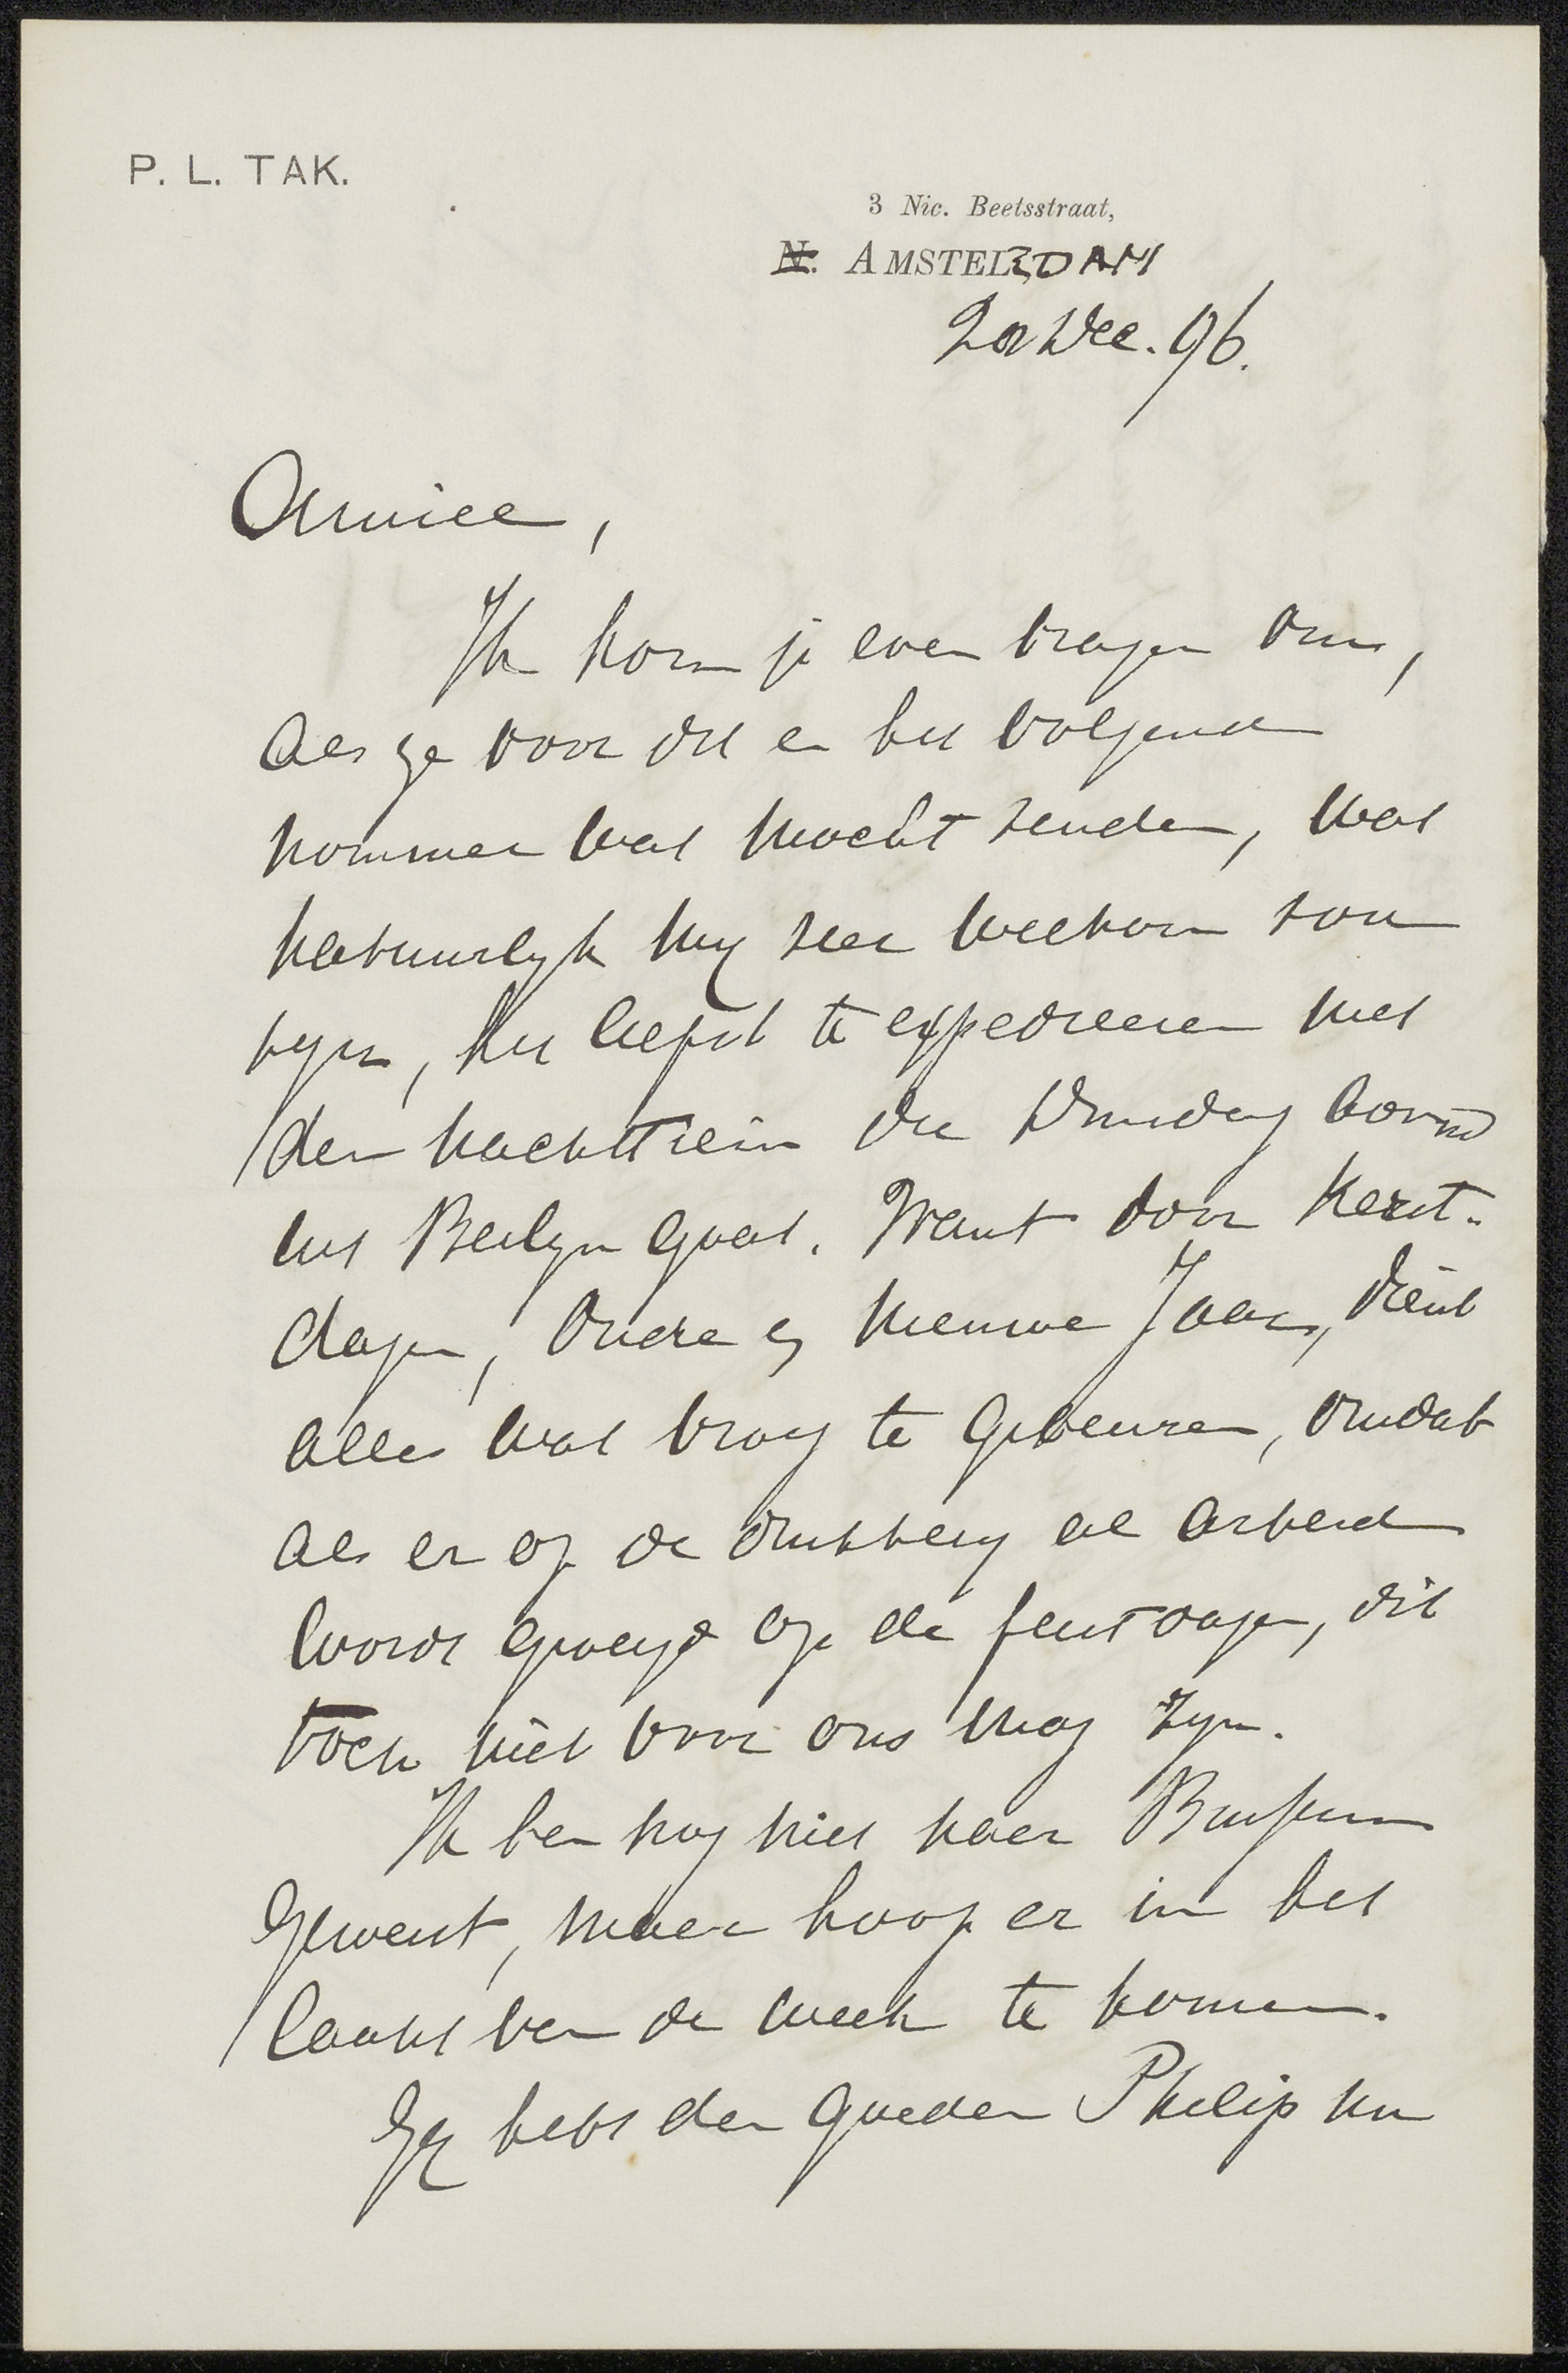 P. L. TAK.
3 Nic. Beetsstraat,
N. AMSTELRDAM
20 Dec. 96.
Amice,
Ik kom je even vragen om,
als ge voor dit en het volgend
nommer wat mocht zenden, wat
natuurlyk my zeer welkom zou
zyn, het liefst te expedieeren met
den nachttrein die Dinsdag avond
uit Berlyn gaat. Want door Kerst-
dagen, Oude en Nieuwe Jaar, dient
alles wat vroeg te gebeuren, omdat
als er op de drukkery al arbeid
wordt gevergd op de feestdagen, dit
toch niet voor ons mag zyn.
Ik ben nog niet naar Bussum
geweest, maar hoop er in het
laatst van de week te komen.
Gy hebt den goeden Philip nu